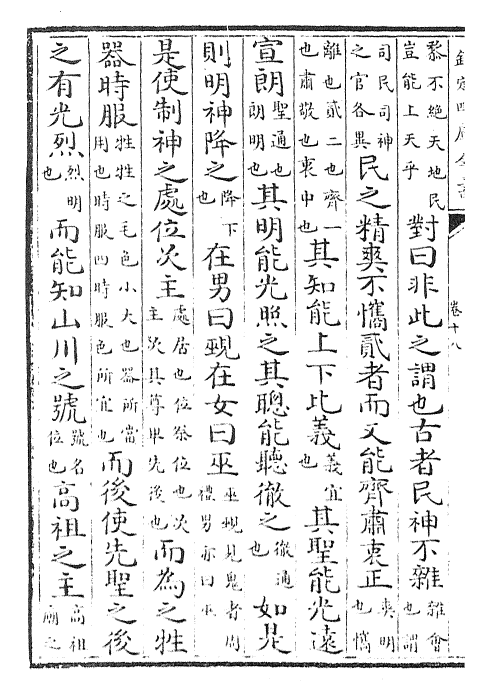 欽定四庫全書
卷十八
黎不絕天地民豈能上天乎對曰非此之謂也古者民神不雜雜會也謂
司民司神之官各異民之精爽不攜貳者而又能齊肅衷正爽明也攜
離也貳二也齊一也肅敬也衷中也其知能上下比義義宜也其聖能光遠
宣朗聖通也朗明也其明能光照之其聰能聽徹之徹通也如是
則明神降之降下也在男曰覡在女曰巫巫覡見鬼者周禮男亦曰巫
是使制神之處位次主處居也位祭位也次主次其尊卑先後也而為之牲
器時服牲牲之毛色小大也器所當用也時服四時服色所宜也而後使先聖之後
之有光烈烈明也而能知山川之號號名位也高祖之主高祖廟之